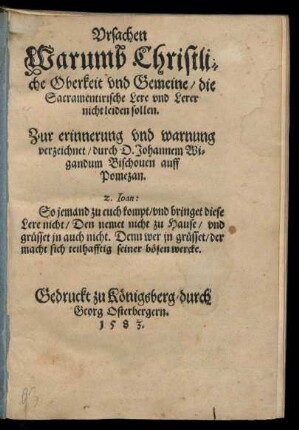 Vrsachen
Warumb Christli-
che Oberkeit vnd Gemeine / die
Sacramentirische Lere vnd Lerer
nicht leiden sollen.
Zur erinnerung vnd warnung
verzeichnet / durch D. Johannem Wi-
gandum Bischouen auff
Pomezan.
2. Ioan:
So jemand zu euch kompt / vnd bringet diese
Lere nicht / Den nemet nicht zu Hause / vnd
grüsset jn auch nicht. Denn wer jn grüsset / der
macht sich teilhafftig seiner bösen wercke.
Gedruckt zu Königsberg / durch
Georg Osterbergern.
1583.